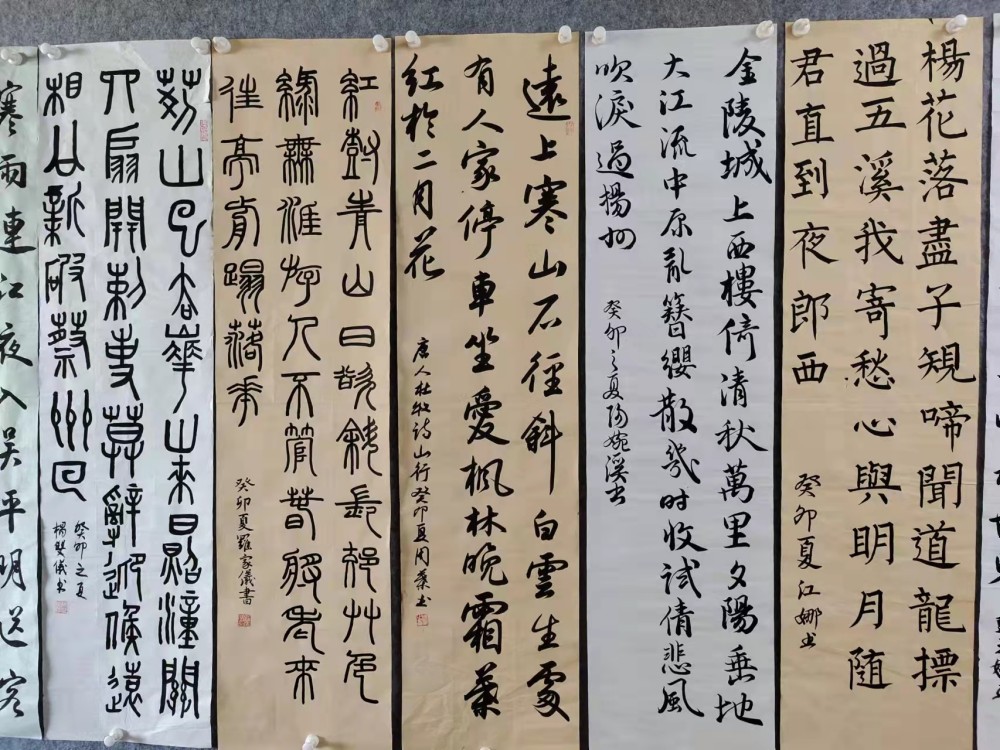 楊花落盡子規啼聞道龍摽
過五溪我寄愁心與明月隨
君直到夜郎西
癸卯夏江娜书
金陵城上西樓倚清秋萬里夕陽垂地
大江流中原亂簪纓散幾时收試倩悲風
吹淚過揚州
癸卯之夏陶婉溪书
遠上寒山石徑斜白雲生處
有人家停車坐愛楓林晚霜葉
紅於二月花
唐人杜牧詩山行癸卯夏周葉书
紅樹青山日欲斜長郊艸色
綠無涯游人不管春將老來
往亭前蹋落花
癸卯夏羅家儀書
荊山已去華山來日照潼關
四扇開刺史莫辭迎候遠
相公新破蔡州回
癸卯之夏
楊斐儀书
寒雨連江夜入吳平明送客